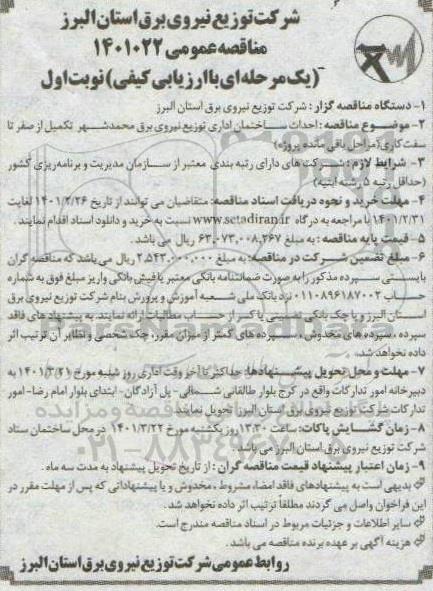 شرکت توزیع نیروی برق استان البرز
مناقصه عمومی ۱۴۰۱۰۲۲
(یک مرحله‌ای با ارزیابی کیفی) نوبت اول
۱- دستگاه مناقصه گزار : شرکت توزیع نیروی برق استان البرز
۲- موضوع مناقصه : احداث ساختمان اداری توزیع نیروی برق محمدشهر تکمیل از صفر تا
سفت کاری(مراحل باقی مانده پروژه)
۳- شرایط لازم : شرکت های دارای رتبه بندی معتبر از سازمان مدیریت و برنامه‌ریزی کشور
(حداقل رتبه ۵ رشته ابنیه)
۴- مهلت خرید و نحوه دریافت اسناد مناقصه: متقاضیان می توانند از تاریخ ۱۴۰۱/۲/۲۶ لغایت
۱۴۰۱/۲/۳۱ با مراجعه به درگاه www.setadiran.ir نسبت به خرید و دانلود اسناد اقدام نمایند.
۵- قیمت پایه مناقصه : به مبلغ ۶۳,۰۷۳,۰۰۸,۲۶۷ ریال می باشد.
۶- مبلغ تضمین شرکت در مناقصه: به مبلغ ۲,۵۴۳,۰۰۰,۰۰۰ ریال می باشد که مناقصه گران
بایستی سپرده مذکور را به صورت ضمانتنامه بانکی معتبر یا فیش بانکی واریز مبلغ فوق به شماره
حساب ۰۱۱۰۸۹۶۱۸۷۰۰۲ نزد بانک ملی شعبه آموزش و پرورش بنام شرکت توزیع نیروی برق
استان البرز و یا چک بانکی تضمینی یا کسر از حساب مطالبات ارائه نمایند. به پیشنهاد های فاقد
سپرده ، سپرده های مخدوش ، سپرده های کمتر از میزان مقرر، چک شخصی و نظایر آن ترتیب اثر
داده نخواهد شد.
۷- مهلت و محل تحویل پیشنهادها: حداکثر تا آخر وقت اداری روز شنبه مورخ ۱۴۰۱/۳/۲۱ به
دبیرخانه امور تدارکات واقع در کرج بلوار طالقانی شمالی- پل آزادگان- ابتدای بلوار امام رضا- امور
تدارکات شرکت توزیع نیروی برق استان البرز تحویل نمایند.
۸- زمان گشایش پاکات: ساعت ۱۳:۳۰ روز یکشنبه مورخ ۱۴۰۱/۳/۲۲ در محل ساختمان ستاد
شرکت توزیع نیروی برق استان البرز می باشد.
۹- زمان اعتبار پیشنهاد قیمت مناقصه گران : از تاریخ تحویل پیشنهاد به مدت سه ماه .
بدیهی است به پیشنهادهای فاقد امضا، مشروط ، مخدوش و یا پیشنهاداتی که پس از مهلت مقرر در
این فراخوان واصل می گردند مطلقاً ترتیب اثر داده نخواهد شد.
سایر اطلاعات و جزئیات مربوط در اسناد مناقصه مندرج است.
هزینه آگهی بر عهده برنده مناقصه می باشد.
روابط عمومی شرکت توزیع نیروی برق استان البرز
ParsNamadData
۰۲۱-۸۸۳۴۹۶۷۰-۵